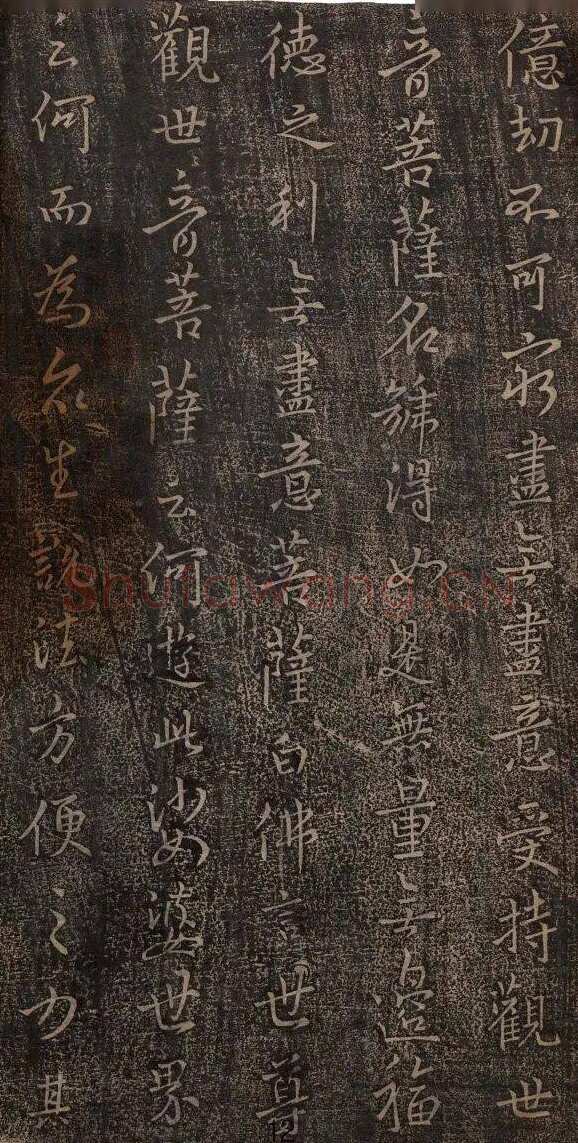 億劫不可窮盡无盡意受持觀世
音菩薩名號得如是無量无邊福
德之利无盡意菩薩白佛言世尊
觀世音菩薩云何遊此娑婆世界
云何而為眾生說法方便之力其
Shufawang.CN
12